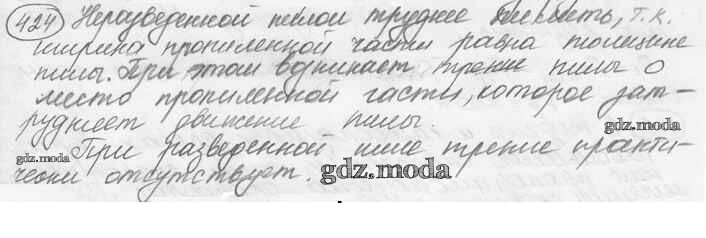 424 Неразведенной пилой труднее пилить, т.к.
ширина пропиленной части равна толщине
пилы. При этом возникает трение пилы о
место пропиленной части, которое зат-
рудняет движение пилы.
gdz.moda
При разведенной пиле трение практи-
gdz.moda
gdz.moda
чески отсутствует.